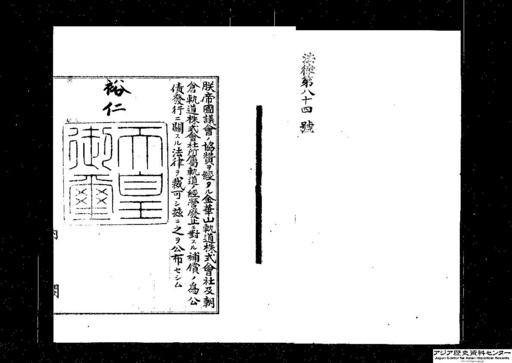 法律第八十四號
朕帝國議會ノ協贊ヲ經タル金華山軌道株式會社及朝
倉軌道株式會社所屬軌道ノ經營廢止ニ對スル補償ノ爲公
債發行ニ關スル法律ヲ裁可シ玆ニ之ヲ公布セシム
裕仁
天皇
御璽
内閣
アジア歴史資料センター
Japan Center for Asian Historical Records